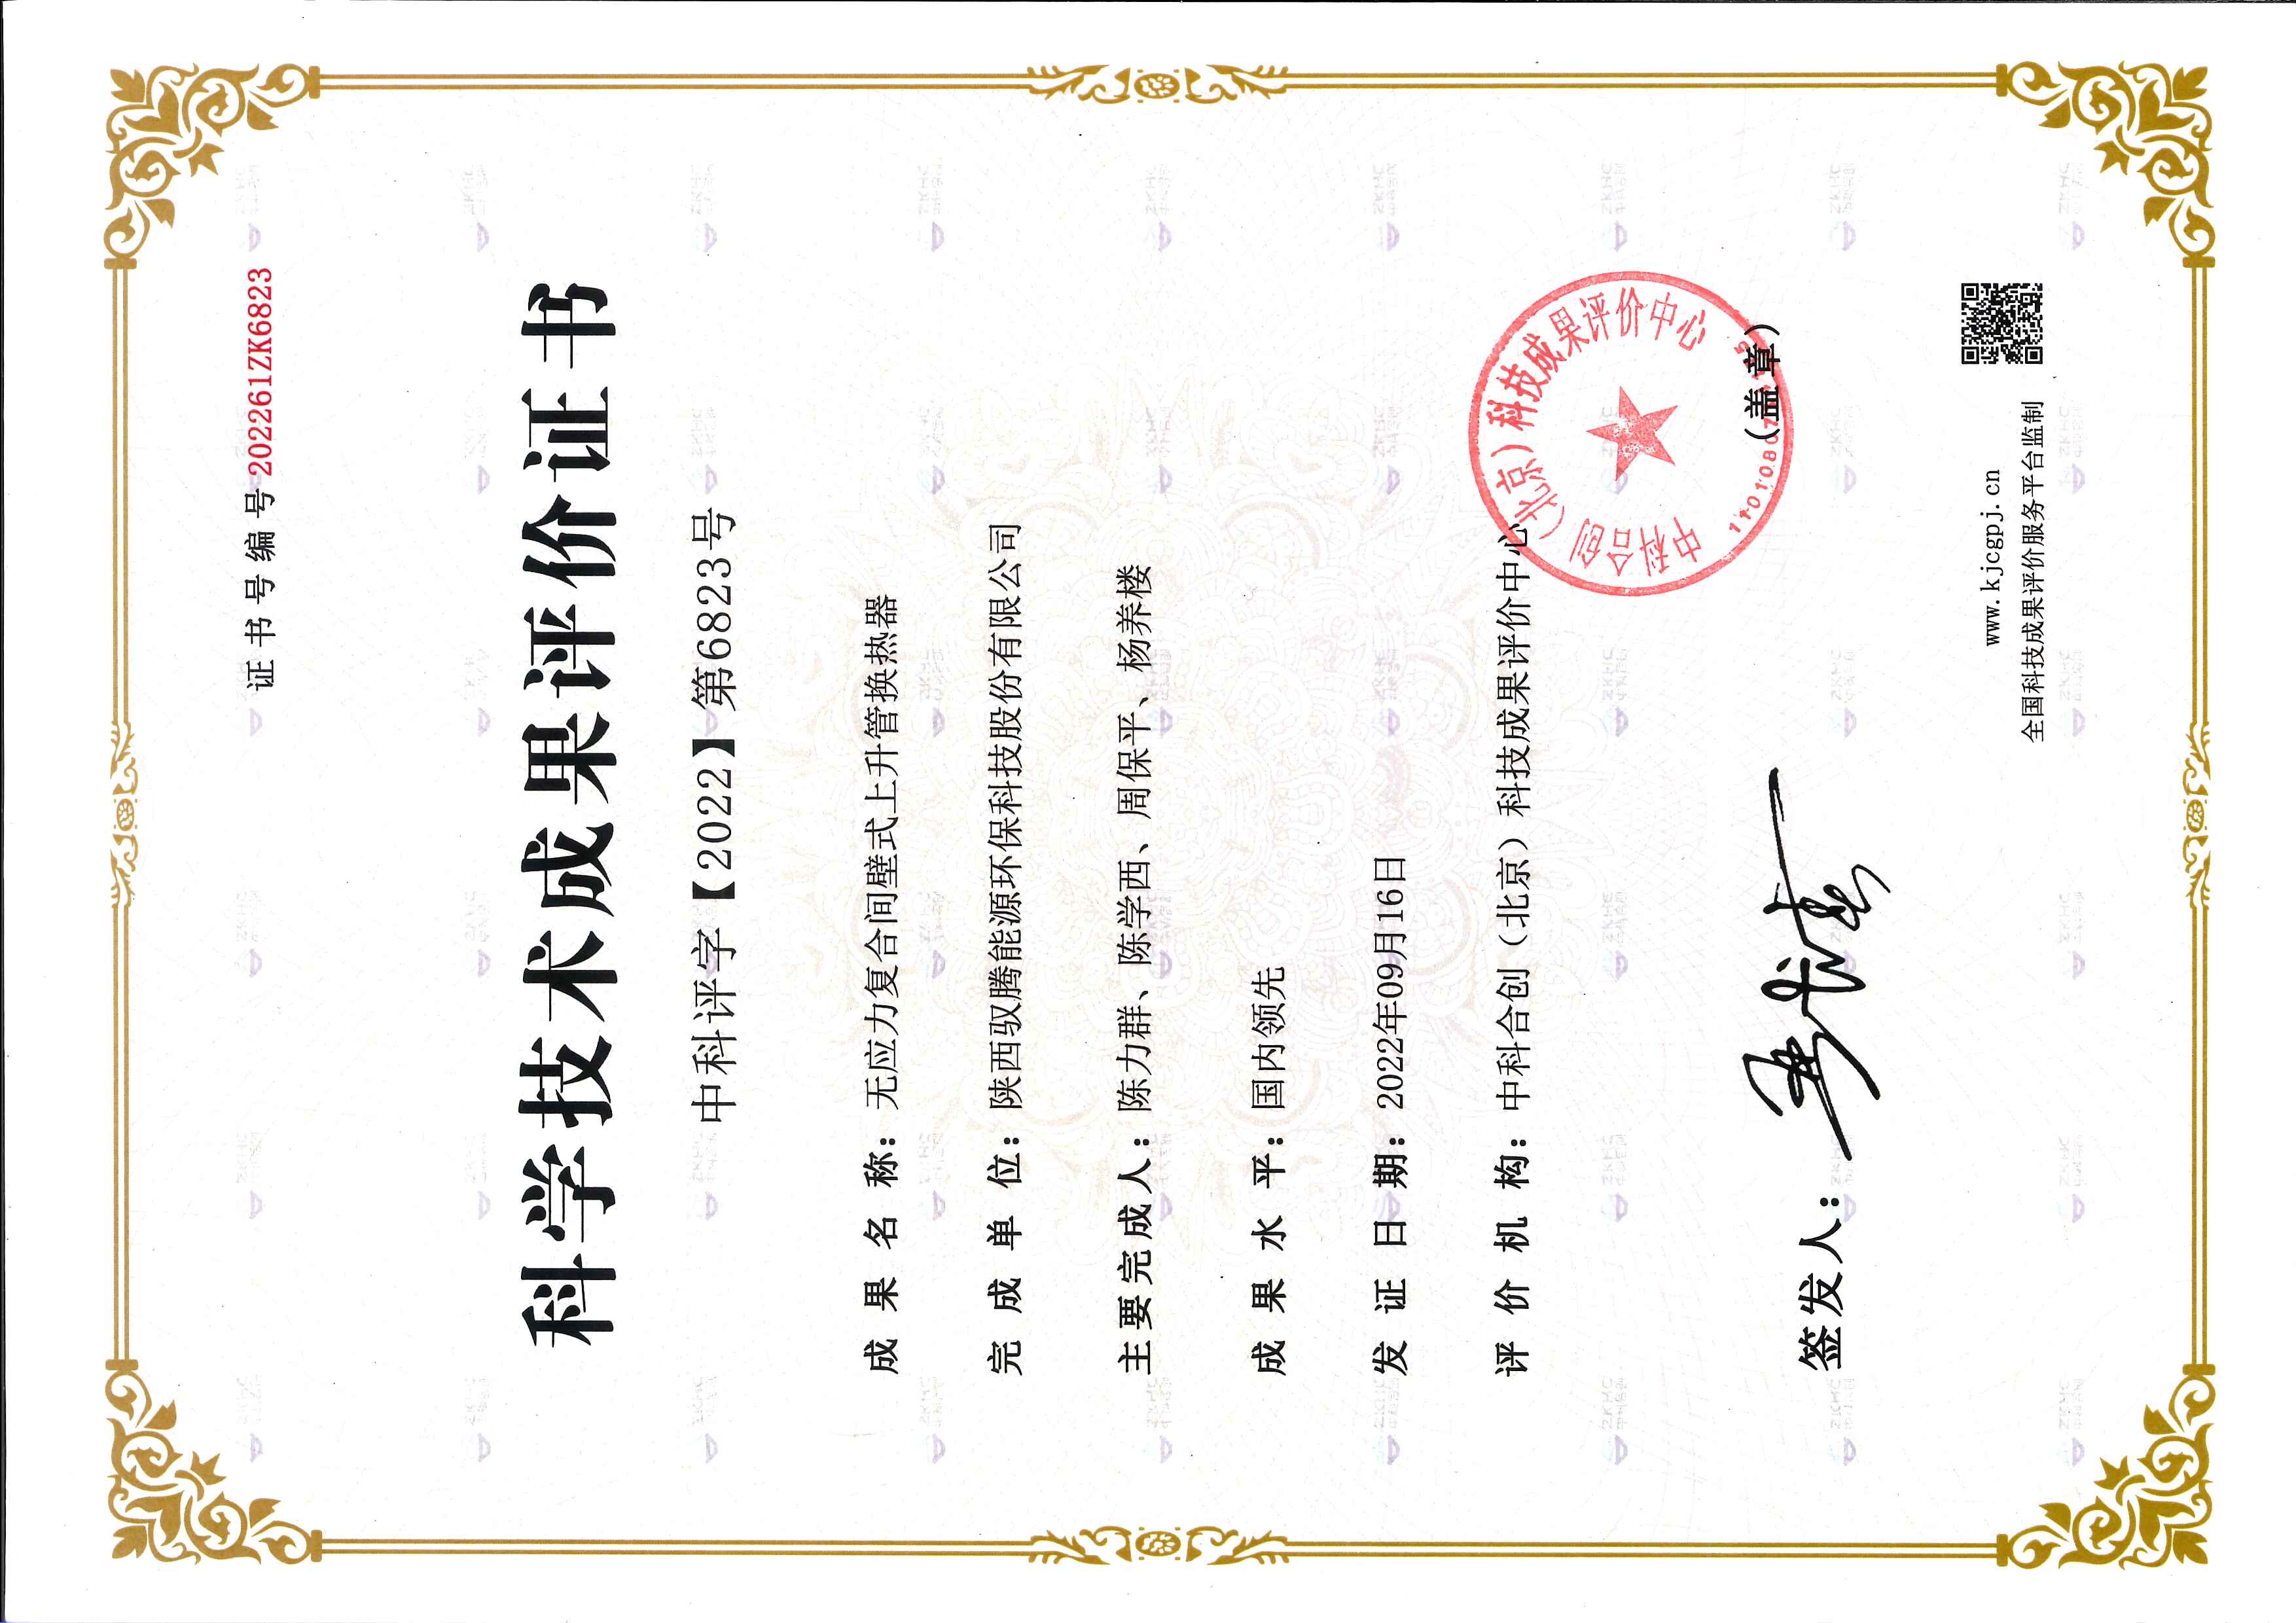 证书号编号 202261ZK6823
科学技术成果评价证书
中科评字【2022】第6823号
成果名称：无应力复合间壁式上升管换热器
完成单位：陕西驭腾能源环保科技股份有限公司
主要完成人：陈力群、陈学西、周保平、杨养楼
成果水平：国内领先
发证日期：2022年09月16日
评价机构：中科合创（北京）科技成果评价中心
中科合创（北京）科技成果评价中心
（盖章）
签发人：
www.kjcgpj.cn
全国科技成果评价服务平台监制